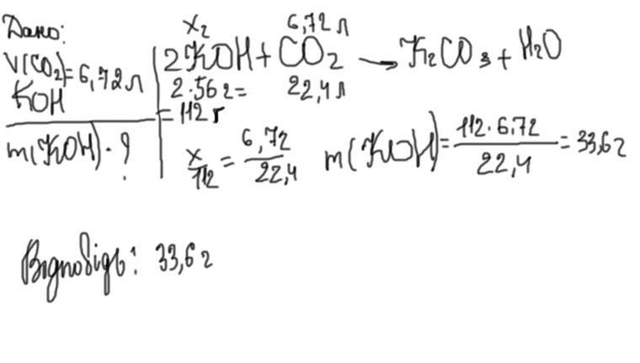 Дано:
V(CO₂)=6,72 л
KOH
m(KOH) - ?
x г 6,72 л
2KOH + CO₂ → K₂CO₃ + H₂O
2·56 г = 22,4 л
= 112 г
x/112 = 6,72/22,4 m(KOH) = 112·6,72/22,4 = 33,6 г
Відповідь: 33,6 г